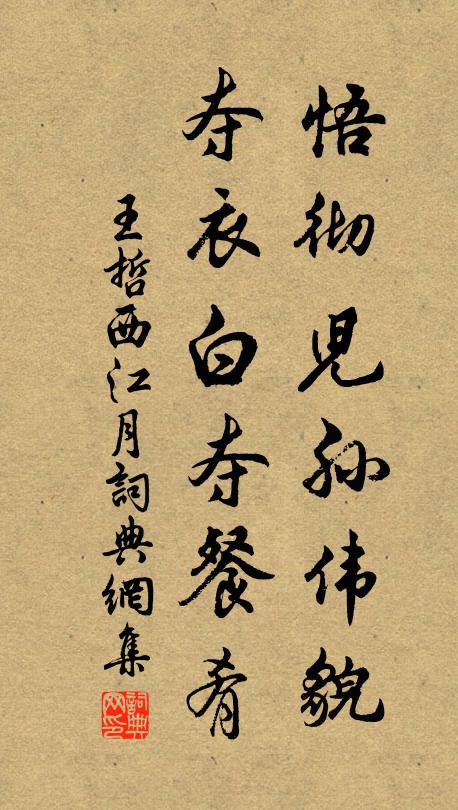 悟彻児孙伟貌
夺衣白夺餐肴
王哲西江月詞典網集
詞典网印